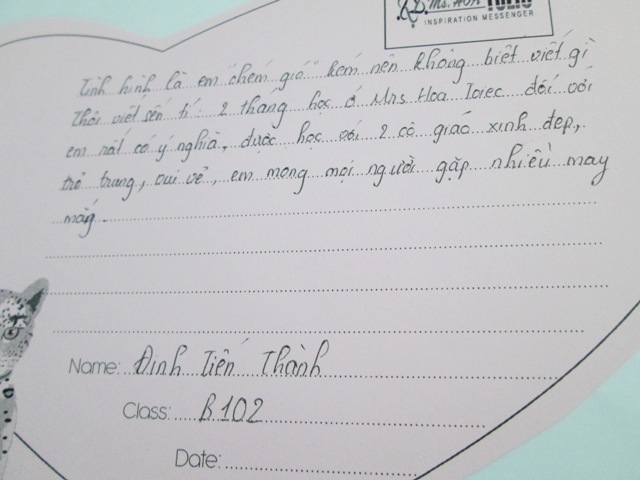 Ms. HOA TOEIC
INSPIRATION MESSENGER
Tình hình là em "chém gió" kém nên không biết viết gì
Thôi viết sến tí: 2 tháng học ở Mrs Hoa Toiec đối với
em rất có ý nghĩa, được học với 2 cô giáo xinh đẹp,
trẻ trung, vui vẻ, em mong mọi người gặp nhiều may
mắn.
Name: Đinh Tiến Thành
Class: B102
Date: